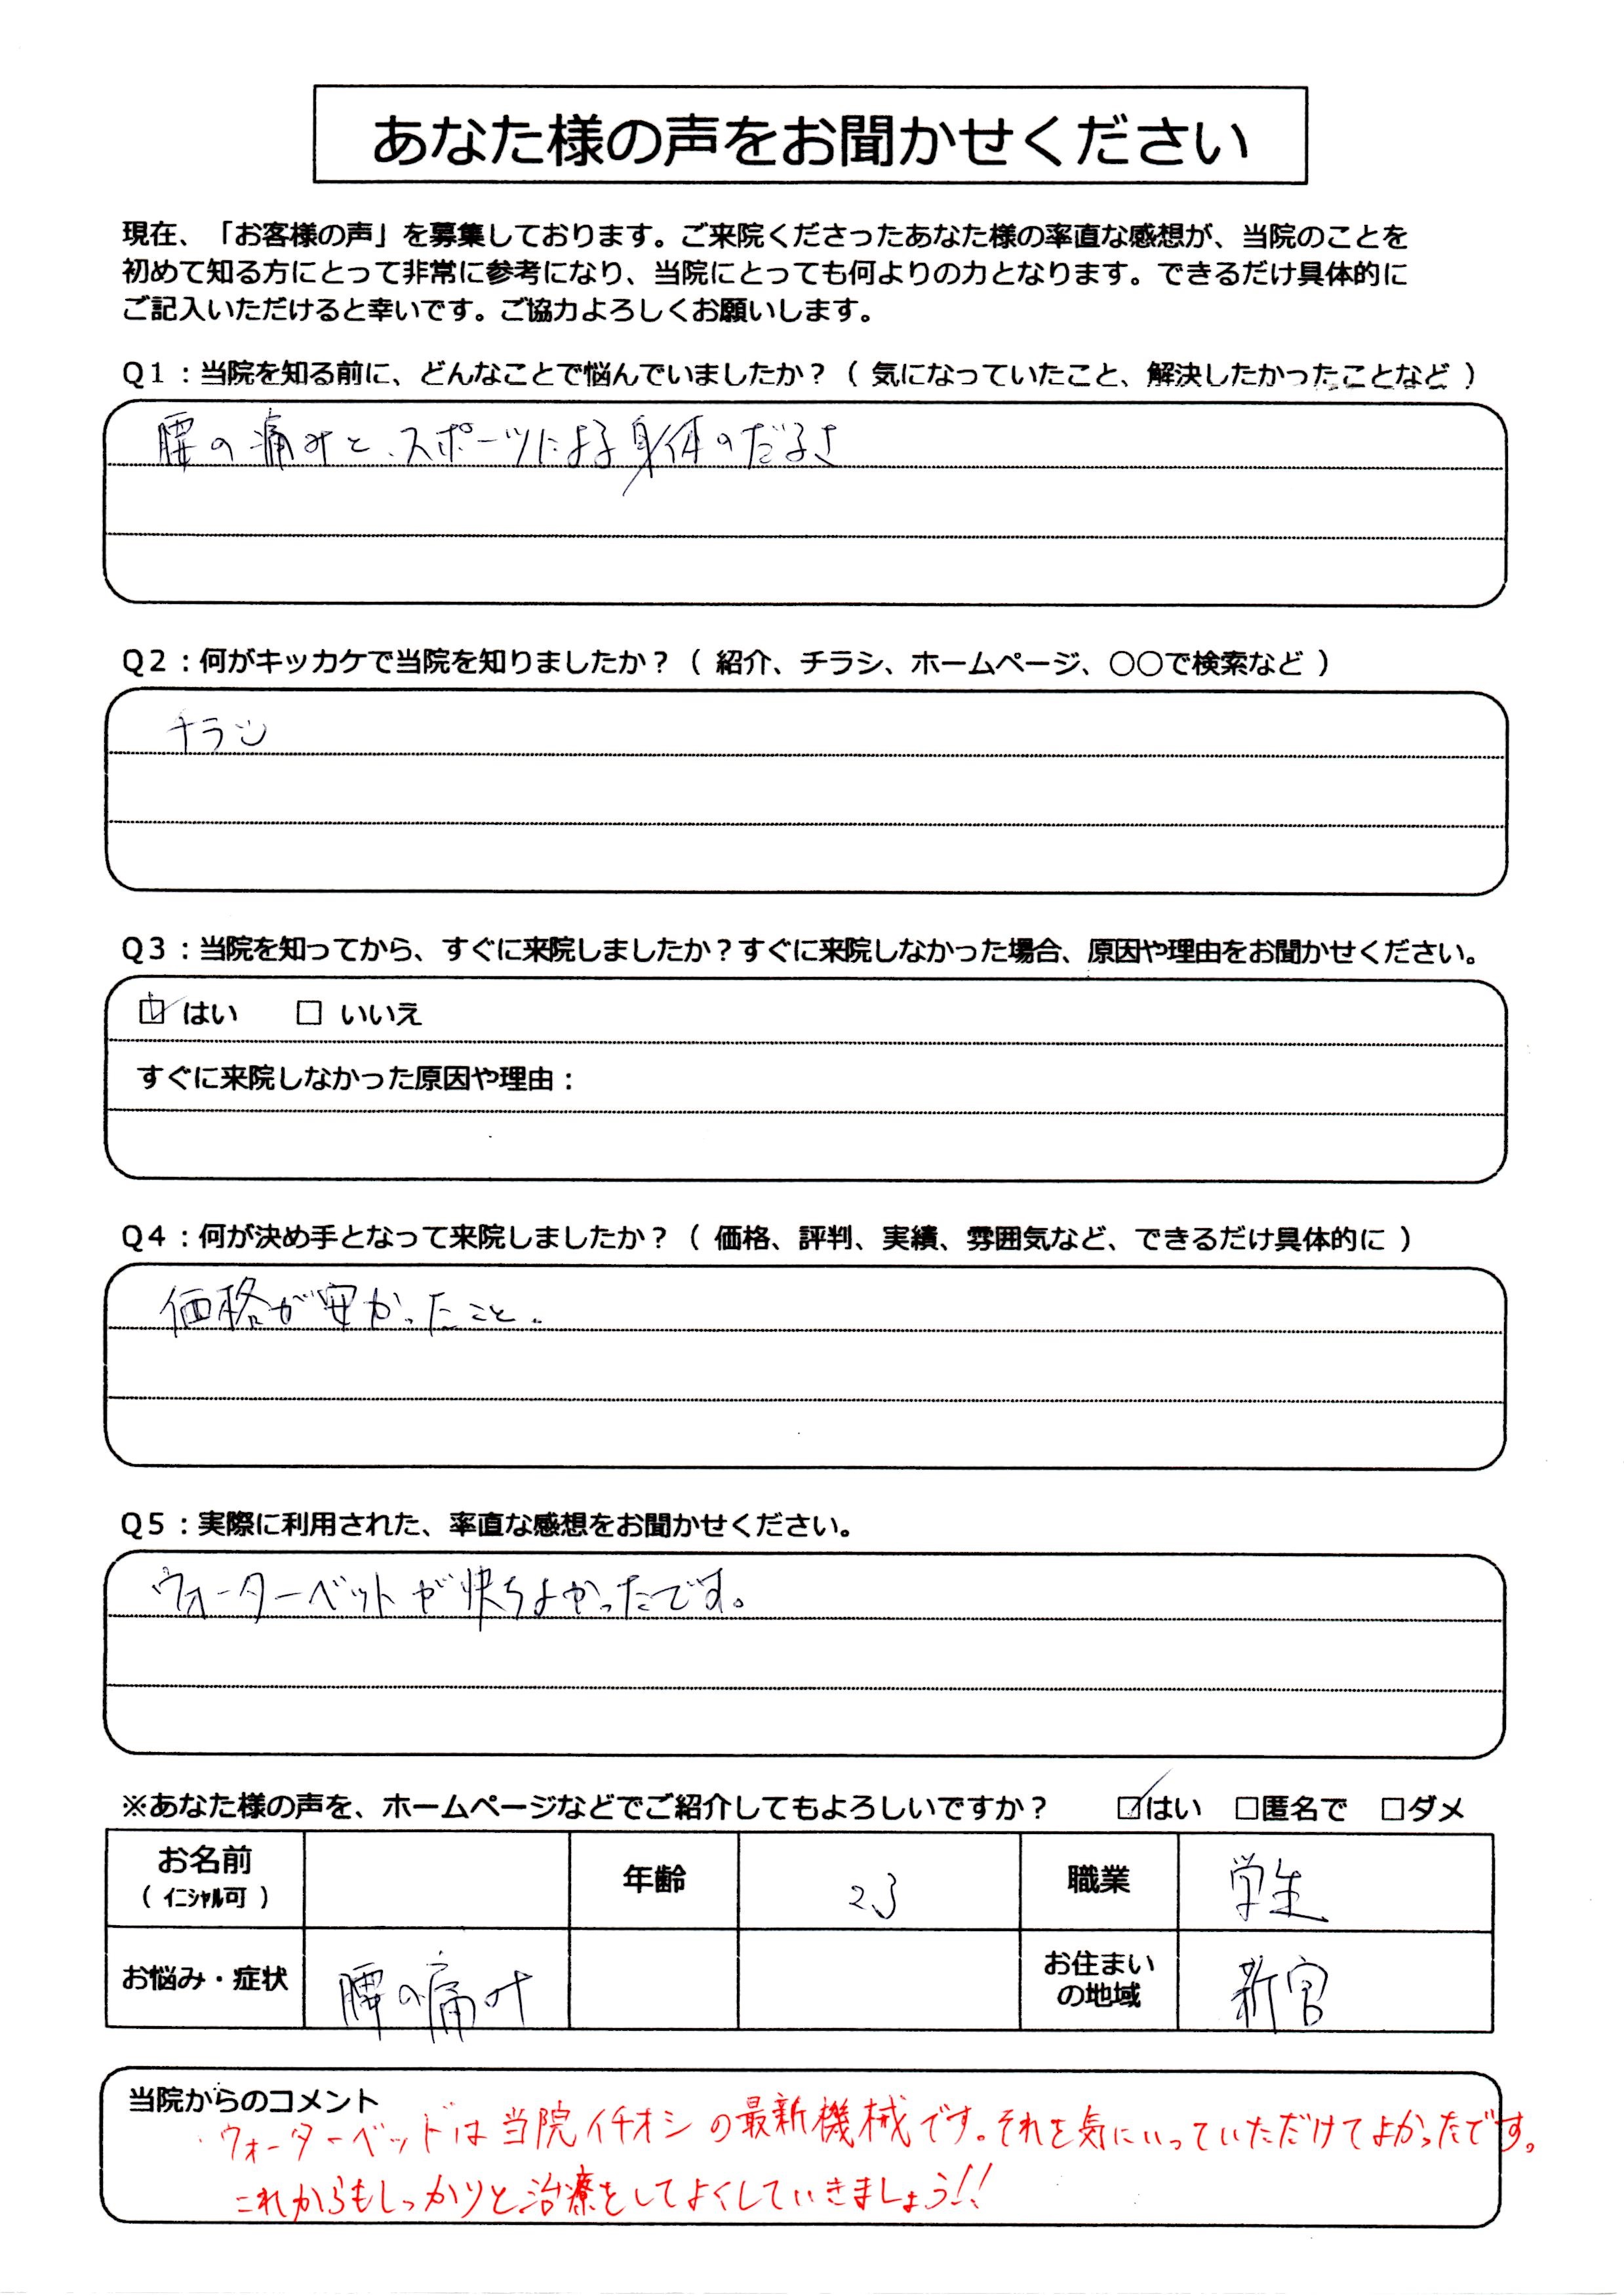 あなた様の声をお聞かせください
現在、「お客様の声」を募集しております。ご来院くださったあなた様の率直な感想が、当院のことを
初めて知る方にとって非常に参考になり、当院にとっても何よりの力となります。できるだけ具体的に
ご記入いただけると幸いです。ご協力よろしくお願いします。
Q1：当院を知る前に、どんなことで悩んでいましたか？（ 気になっていたこと、解決したかったことなど ）
腰の痛みと、スポーツによる身体のだるさ
Q2：何がキッカケで当院を知りましたか？（ 紹介、チラシ、ホームページ、○○で検索など ）
チラシ
Q3：当院を知ってから、すぐに来院しましたか？すぐに来院しなかった場合、原因や理由をお聞かせください。
☑ はい　□ いいえ
すぐに来院しなかった原因や理由：
Q4：何が決め手となって来院しましたか？（ 価格、評判、実績、雰囲気など、できるだけ具体的に ）
価格が安かったこと。
Q5：実際に利用された、率直な感想をお聞かせください。
ウォーターベットが快ちよかったです。
※あなた様の声を、ホームページなどでご紹介してもよろしいですか？　☑はい　□匿名で　□ダメ
お名前
（ ｲﾆｼｬﾙ可 ）
年齢　23　職業　学生
お悩み・症状　腰の痛み　お住まいの地域　新宮
当院からのコメント
ウォーターベッドは当院イチオシの最新機械です。それを気にいっていただけてよかったです。
これからもしっかりと治療をしてよくしていきましょう!!